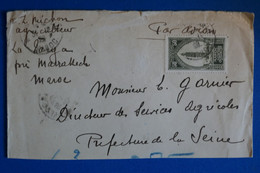 agriculteur
près Marrakech
Maroc
Par avion
Monsieur L. Garnier
Directeur des Services Agricoles
Préfecture de la Seine